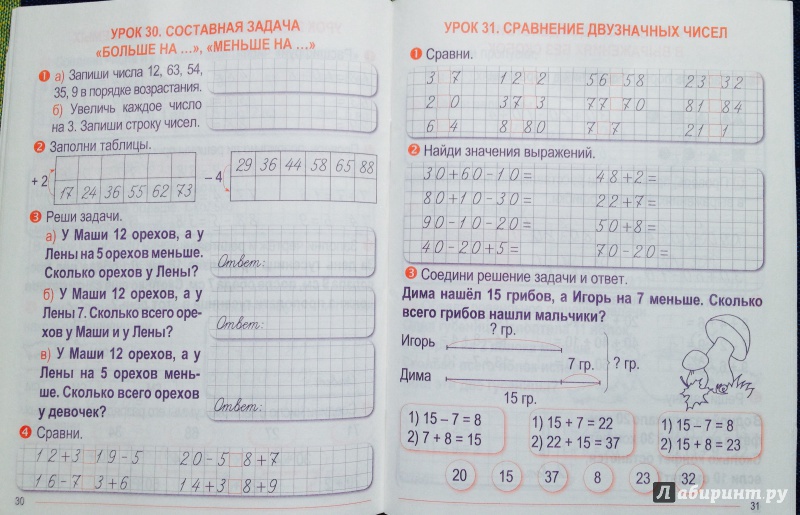 УРОК 30. СОСТАВНАЯ ЗАДАЧА
«БОЛЬШЕ НА ...», «МЕНЬШЕ НА ...»
1 а) Запиши числа 12, 63, 54,
35, 9 в порядке возрастания.
б) Увеличь каждое число
на 3. Запиши строку чисел.
2 Заполни таблицы.
+ 2
17 24 36 55 62 73
– 4
29 36 44 58 65 88
3 Реши задачи.
а) У Маши 12 орехов, а у
Лены на 5 орехов меньше.
Сколько орехов у Лены?
Ответ:
б) У Маши 12 орехов, а у
Лены 7. Сколько всего оре-
хов у Маши и у Лены?
Ответ:
в) У Маши 12 орехов, а у
Лены на 5 орехов мень-
ше. Сколько всего орехов
у девочек?
Ответ:
4 Сравни.
12+3 19-5 20-5 8+7
16-7 3+6 14+3 8+9
30
УРОК 31. СРАВНЕНИЕ ДВУЗНАЧНЫХ ЧИСЕЛ
1 Сравни.
3 7 12 2 56 58 23 32
2 0 37 3 77 70 81 84
6 4 8 80 7 7 21 1
2 Найди значения выражений.
30+60-10= 48+2=
80+10-30= 22+7=
90-10-20= 50+8=
40-20+5= 70-20=
3 Соедини решение задачи и ответ.
Дима нашёл 15 грибов, а Игорь на 7 меньше. Сколько
всего грибов нашли мальчики?
? гр.
Игорь
7 гр.
? гр.
Дима
15 гр.
1) 15 – 7 = 8
2) 7 + 8 = 15
1) 15 + 7 = 22
2) 22 + 15 = 37
1) 15 – 7 = 8
2) 15 + 8 = 23
20 15 37 8 23 32
31
Лабиринт.ру